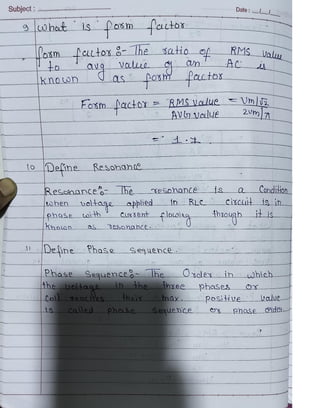 Subject :
Date : / /
9 What is form factor
form factor :- The ratio of RMS value
to avg value of an AC is
known as form factor
Form factor = RMS value = Vm/√2
AVG value 2Vm/π
= 1.1
10 Define Resonance
Resonance :- The resonance is a Condition
when voltage applied in RLC circuit is in
phase with current flowing through it is
known as resonance.
11 Define Phase Sequence.
Phase Sequence :- The Order in which
the voltage in the three phases or
coil reaches their max. positive value
is called phase sequence or phase order.